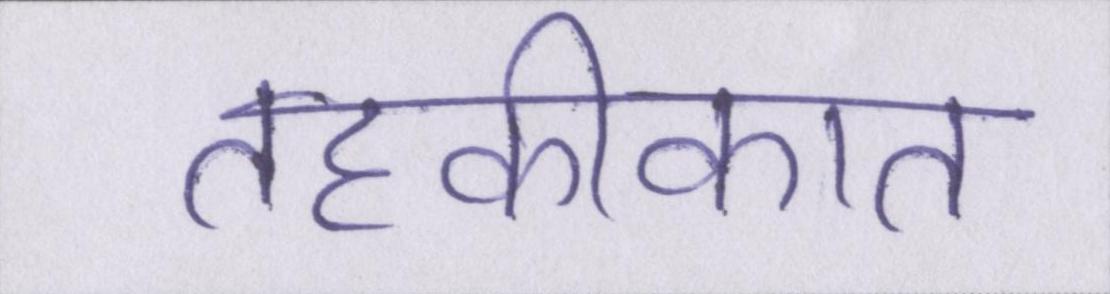 तहकीकात